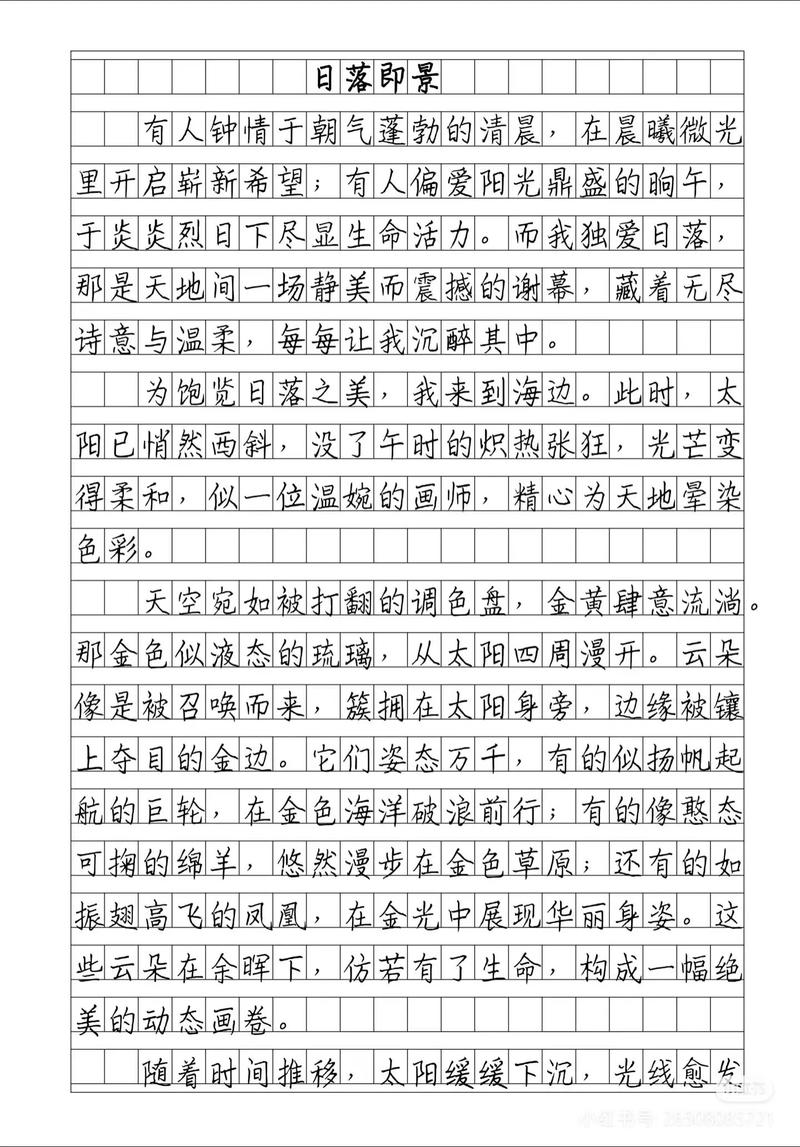 日落即景
有人钟情于朝气蓬勃的清晨，在晨曦微光
里开启崭新希望；有人偏爱阳光鼎盛的晌午，
于炎炎烈日下尽显生命活力。而我独爱日落，
那是天地间一场静美而震撼的谢幕，藏着无尽
诗意与温柔，每每让我沉醉其中。
为饱览日落之美，我来到海边。此时，太
阳已悄然西斜，没了午时的炽热张狂，光芒变
得柔和，似一位温婉的画师，精心为天地晕染
色彩。
天空宛如被打翻的调色盘，金黄肆意流淌。
那金色似液态的琉璃，从太阳四周漫开。云朵
像是被召唤而来，簇拥在太阳身旁，边缘被镶
上夺目的金边。它们姿态万千，有的似扬帆起
航的巨轮，在金色海洋破浪前行；有的像憨态
可掬的绵羊，悠然漫步在金色草原；还有的如
振翅高飞的凤凰，在金光中展现华丽身姿。这
些云朵在余晖下，仿若有了生命，构成一幅绝
美的动态画卷。
随着时间推移，太阳缓缓下沉，光线愈发
小红书号